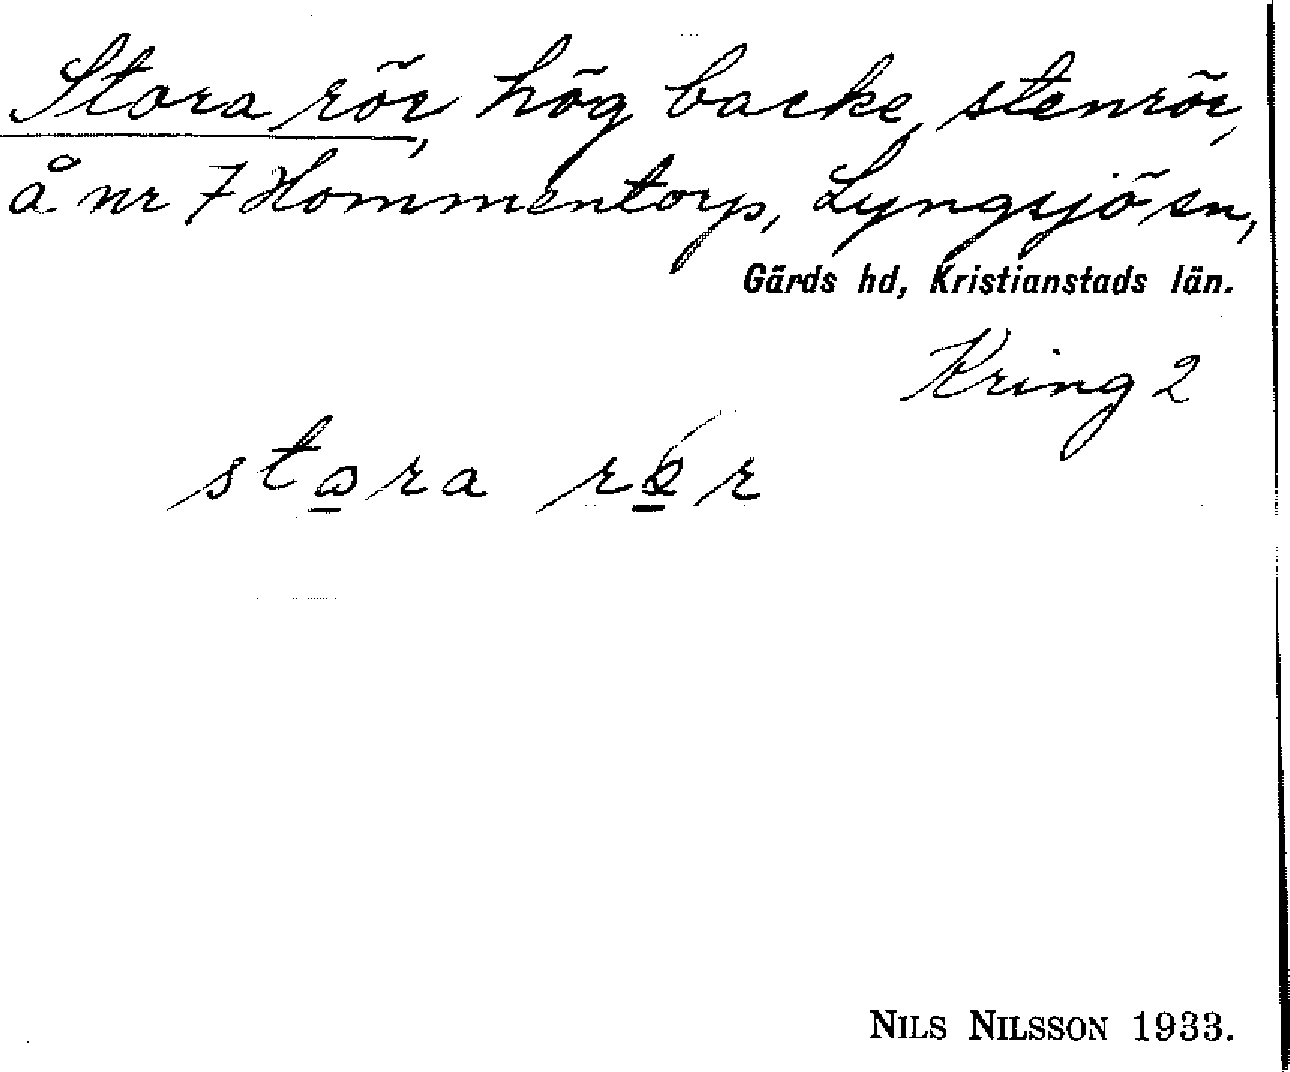 Stora rör, hög backe, stenrör,
å nr 7 Hommentorp, Lyngsjö sn,
Gärds hd, Kristianstads län.
Kring 2
stora
NILS NILSSON 1933.